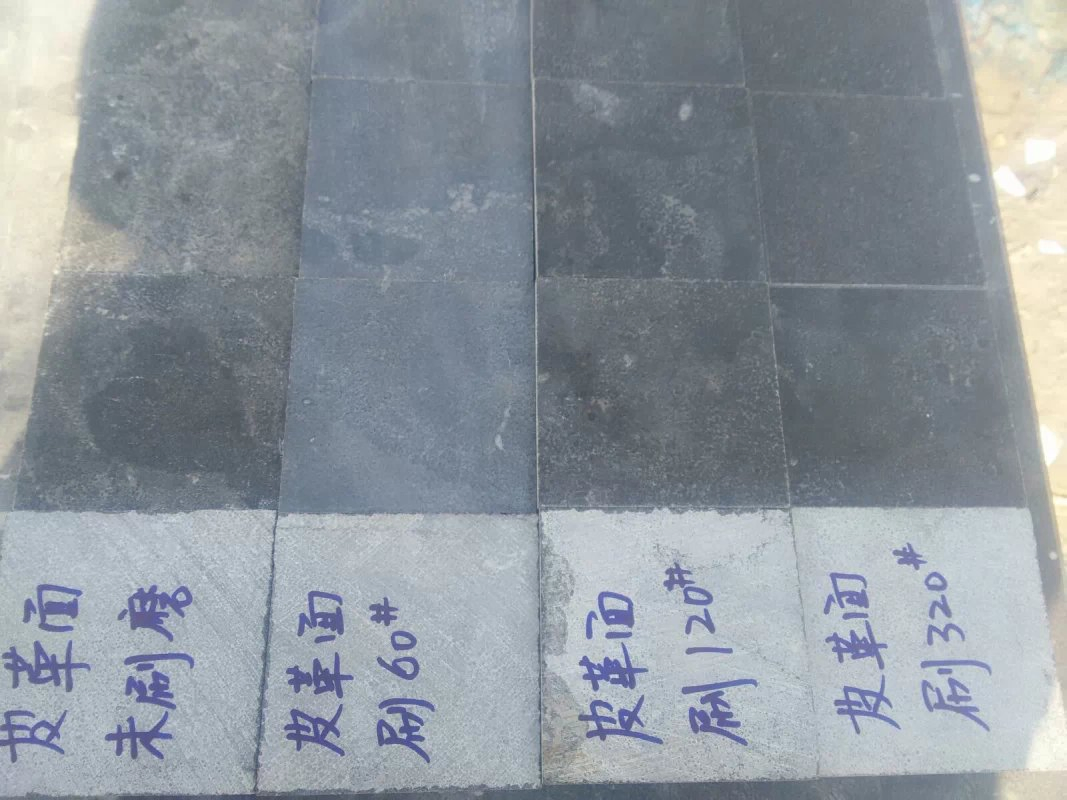 皮革面
未刷磨
皮革面
刷60#
皮革面
刷120#
皮革面
刷320#